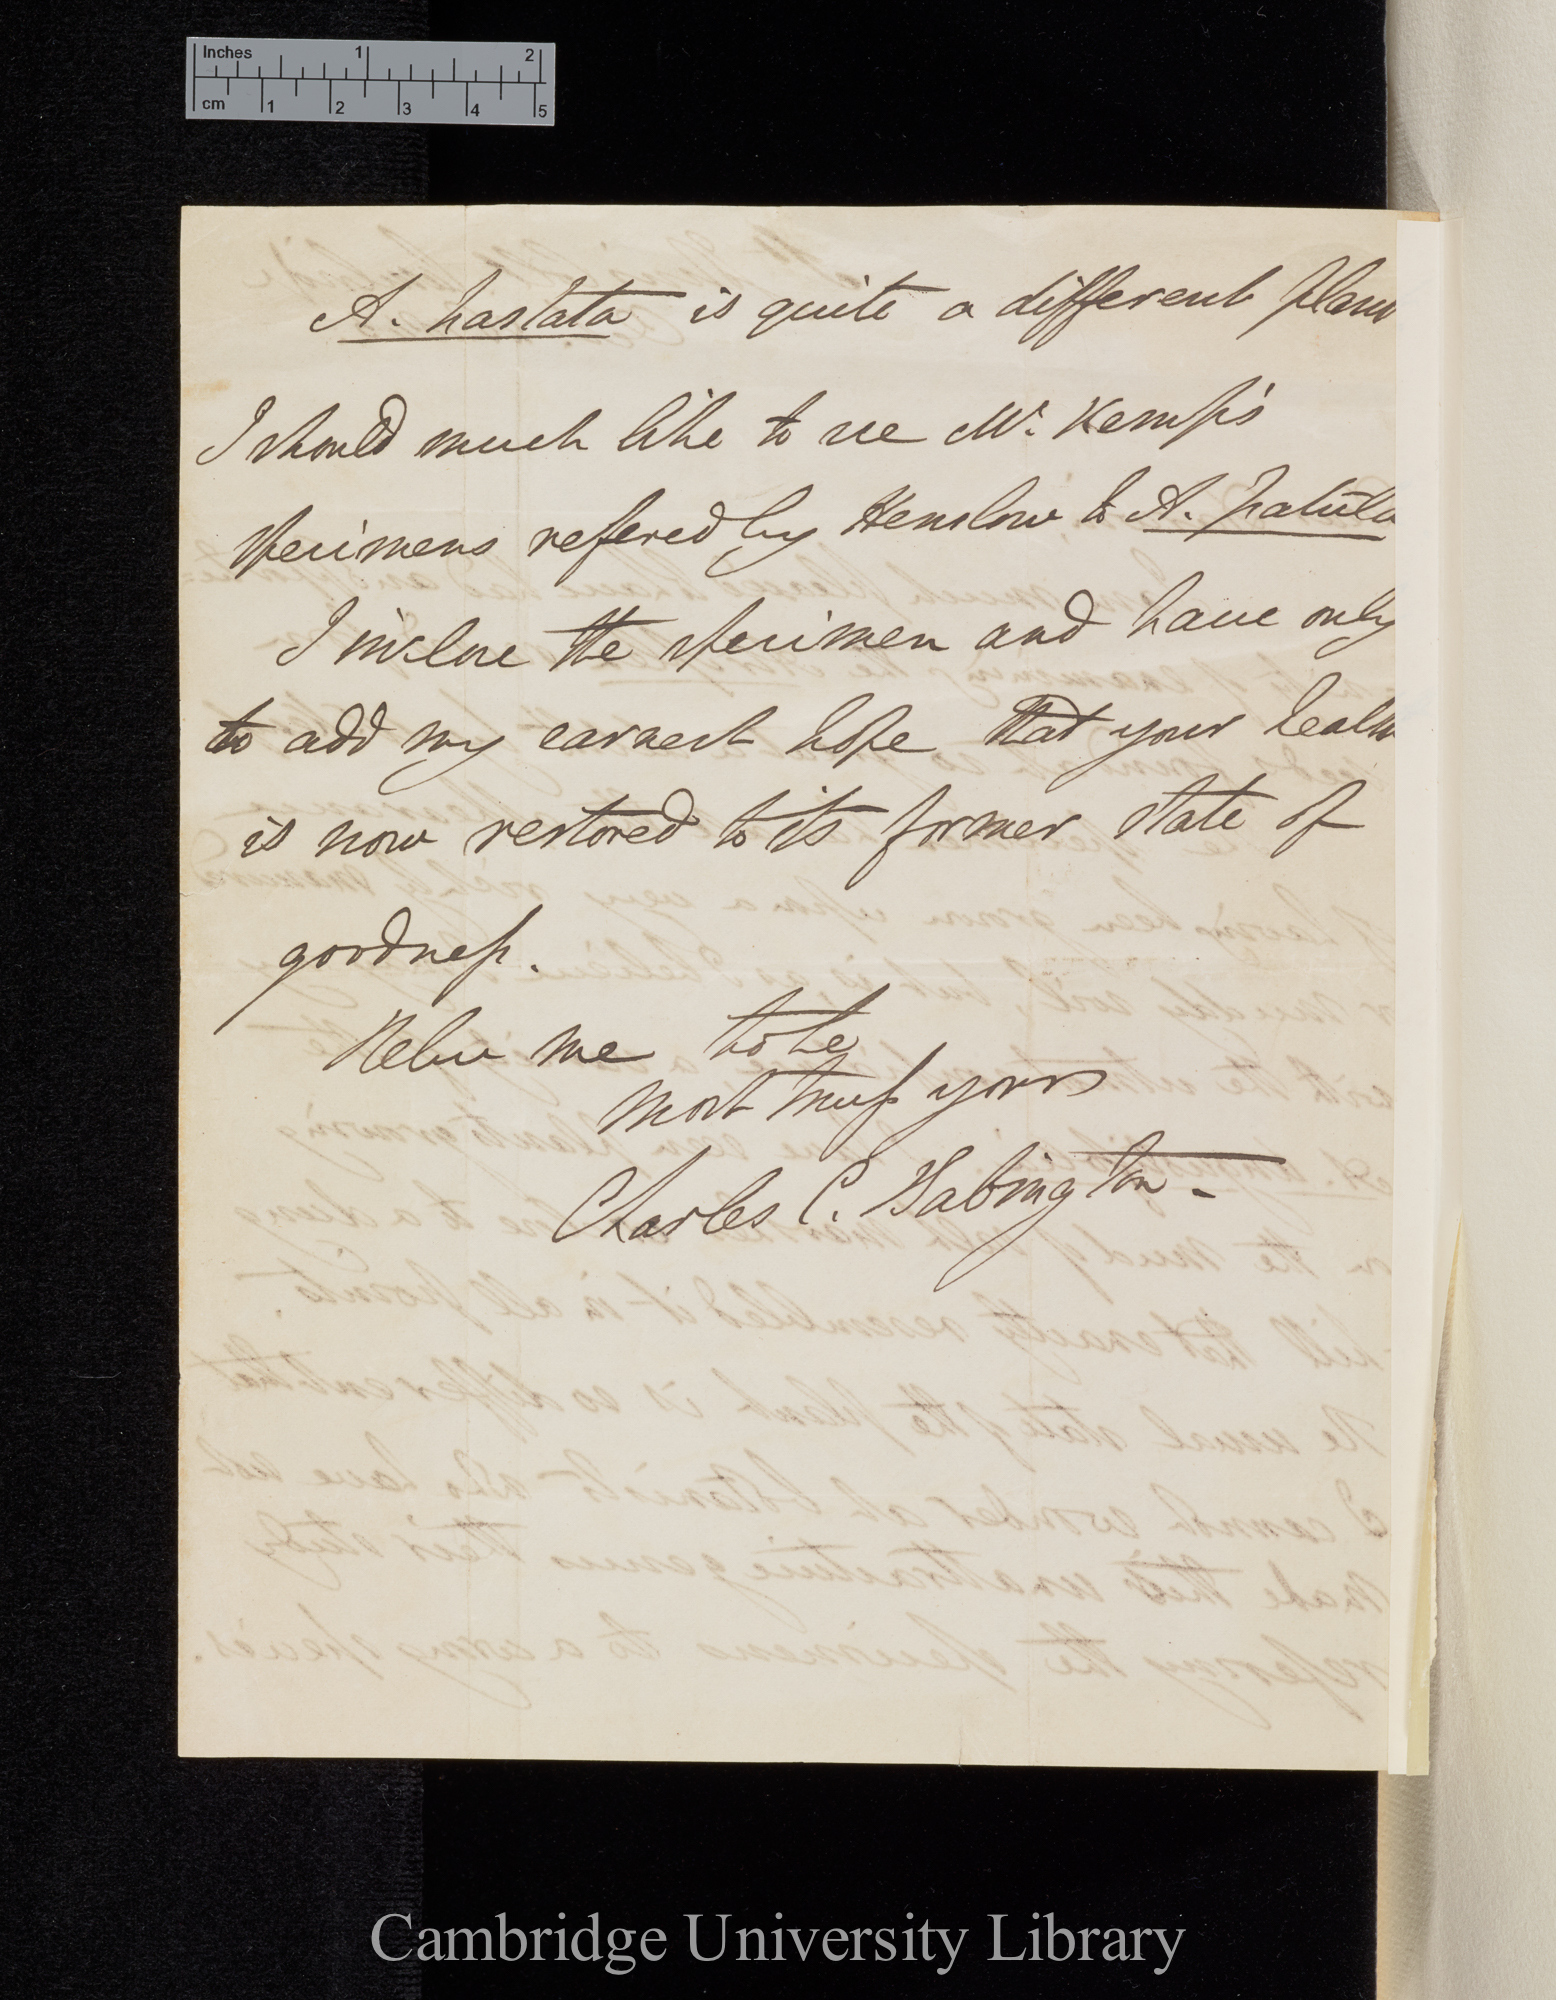 Inches 1 2
cm 1 2 3 4 5
A. hastata is quite a different plant
I should much like to see Mr. Kemp's
specimens refered by Henslow to A. patula
I inclose the specimen and have only
to add my earnest hope that your health
is now restored to its former state of
goodness.
me to be
most truly yours
Charles C. Babington.
Cambridge University Library